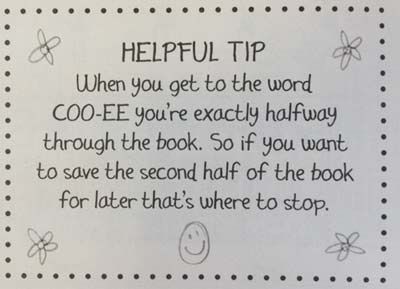 HELPFUL TIP
When you get to the word
COO-EE you're exactly halfway
through the book. So if you want
to save the second half of the book
for later that's where to stop.